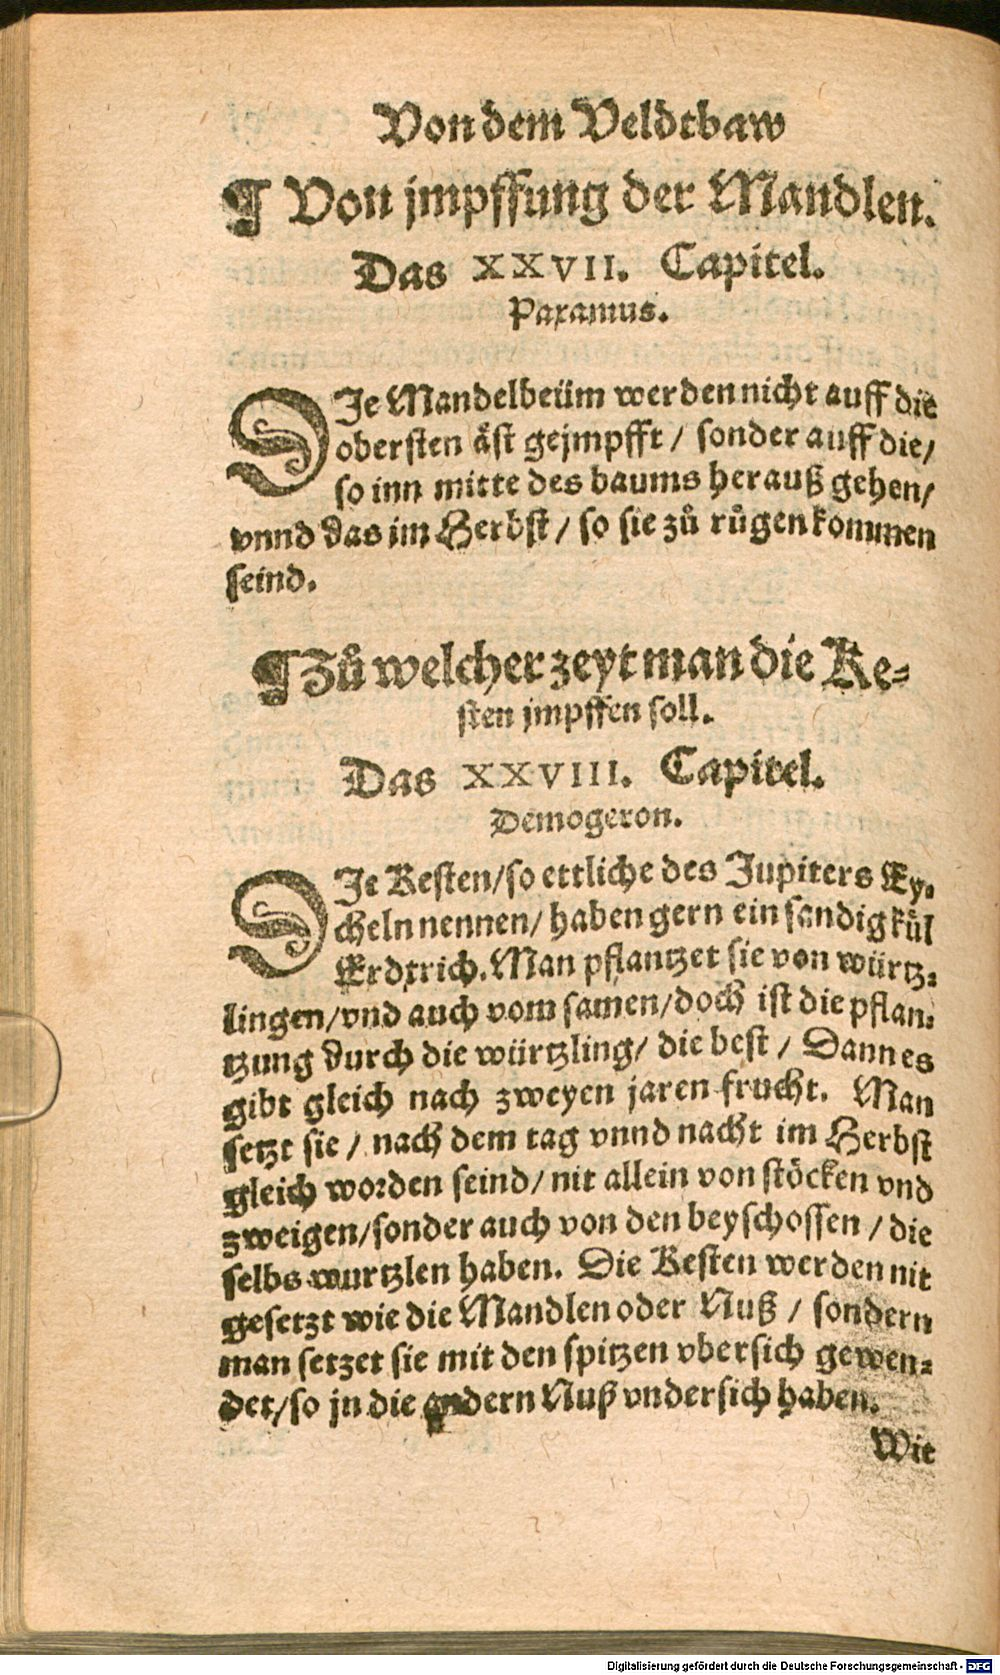 Von dem Veldtbaw
¶ Von jmpffung der Mandlen.
Das XXVII. Capitel.
Paxamus.
DIe Mandelbeüm werden nicht auff die
obersten äst gejmpfft / sonder auff die /
so inn mitte des baums herauß gehen /
vnnd das im Herbst / so sie zů růgen kommen
seind.
¶ Zů welcher zeyt man die Ke-
sten jmpffen soll.
Das XXVIII. Capitel.
Demogeron.
DIe Kesten / so ettliche des Jupiters Ey-
cheln nennen / haben gern ein sandig kůl
Erdtrich. Man pflantzet sie von würtz-
lingen / vnd auch vom samen / doch ist die pflan-
tzung durch die würtzling / die best / Dann es
gibt gleich nach zweyen jaren frucht. Man
setzt sie / nach dem tag vnnd nacht im Herbst
gleich worden seind / nit allein von stöcken vnd
zweigen / sonder auch von den beyschossen / die
selbs wurtzlen haben. Die Kesten werden nit
gesetzt wie die Mandlen oder Nuß / sondern
man setzet sie mit den spitzen vbersich gewen-
det / so jn die andern Nuß vndersich haben.
Wie
Digitalisierung gefördert durch die Deutsche Forschungsgemeinschaft - DFG